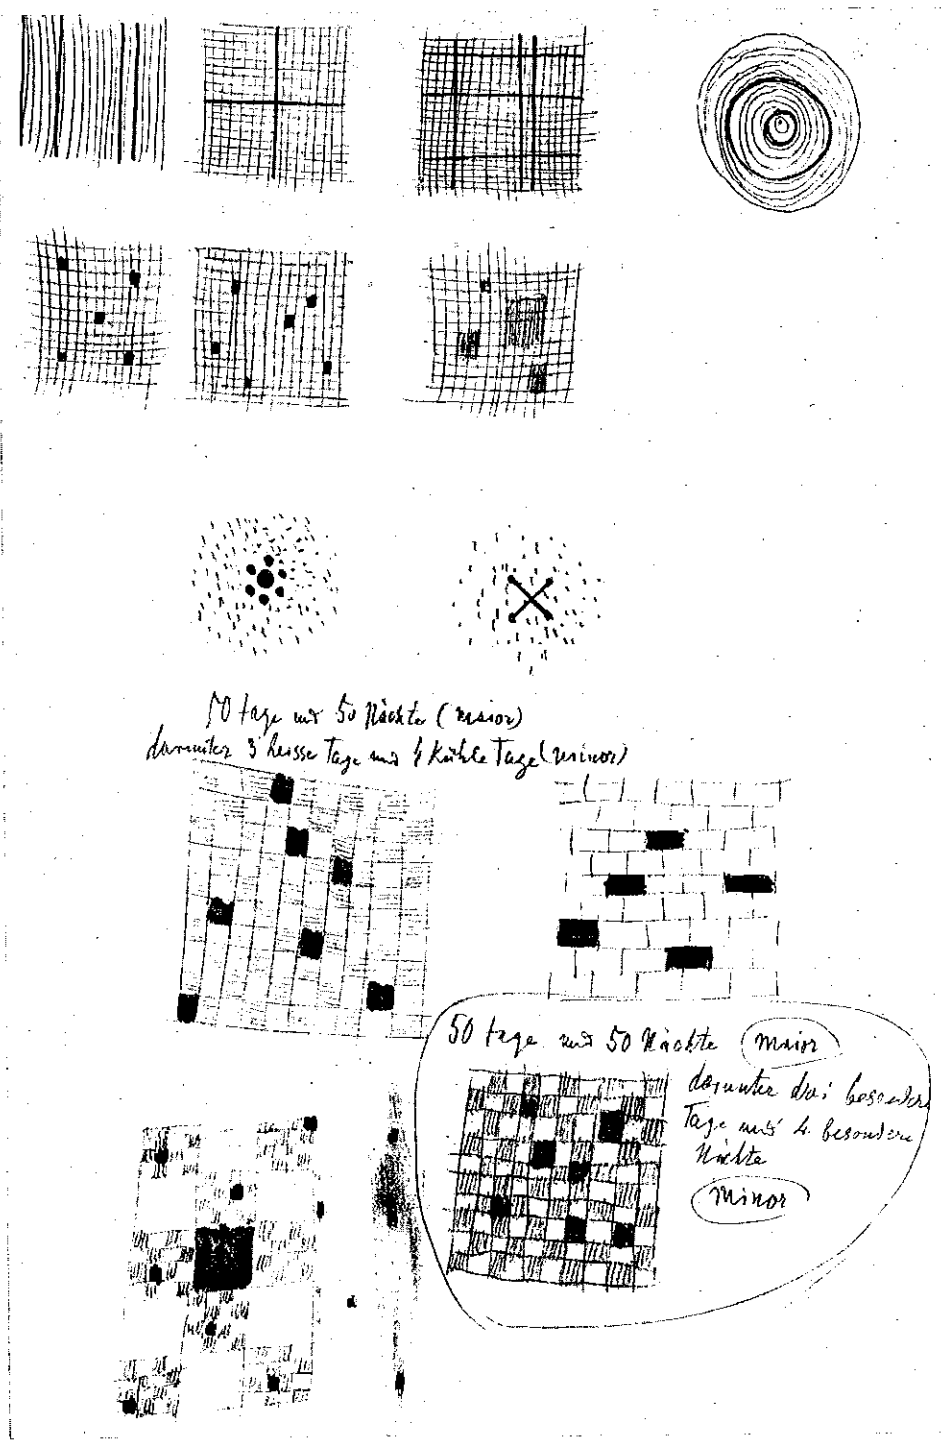 50 tage und 50 Nächte (maior)
darunter 3 heisse Tage und 4 kühle Tage (minor)
50 tage und 50 Nächte maior
darunter drei besondere
Tage und 4 besondere
Nächte
minor